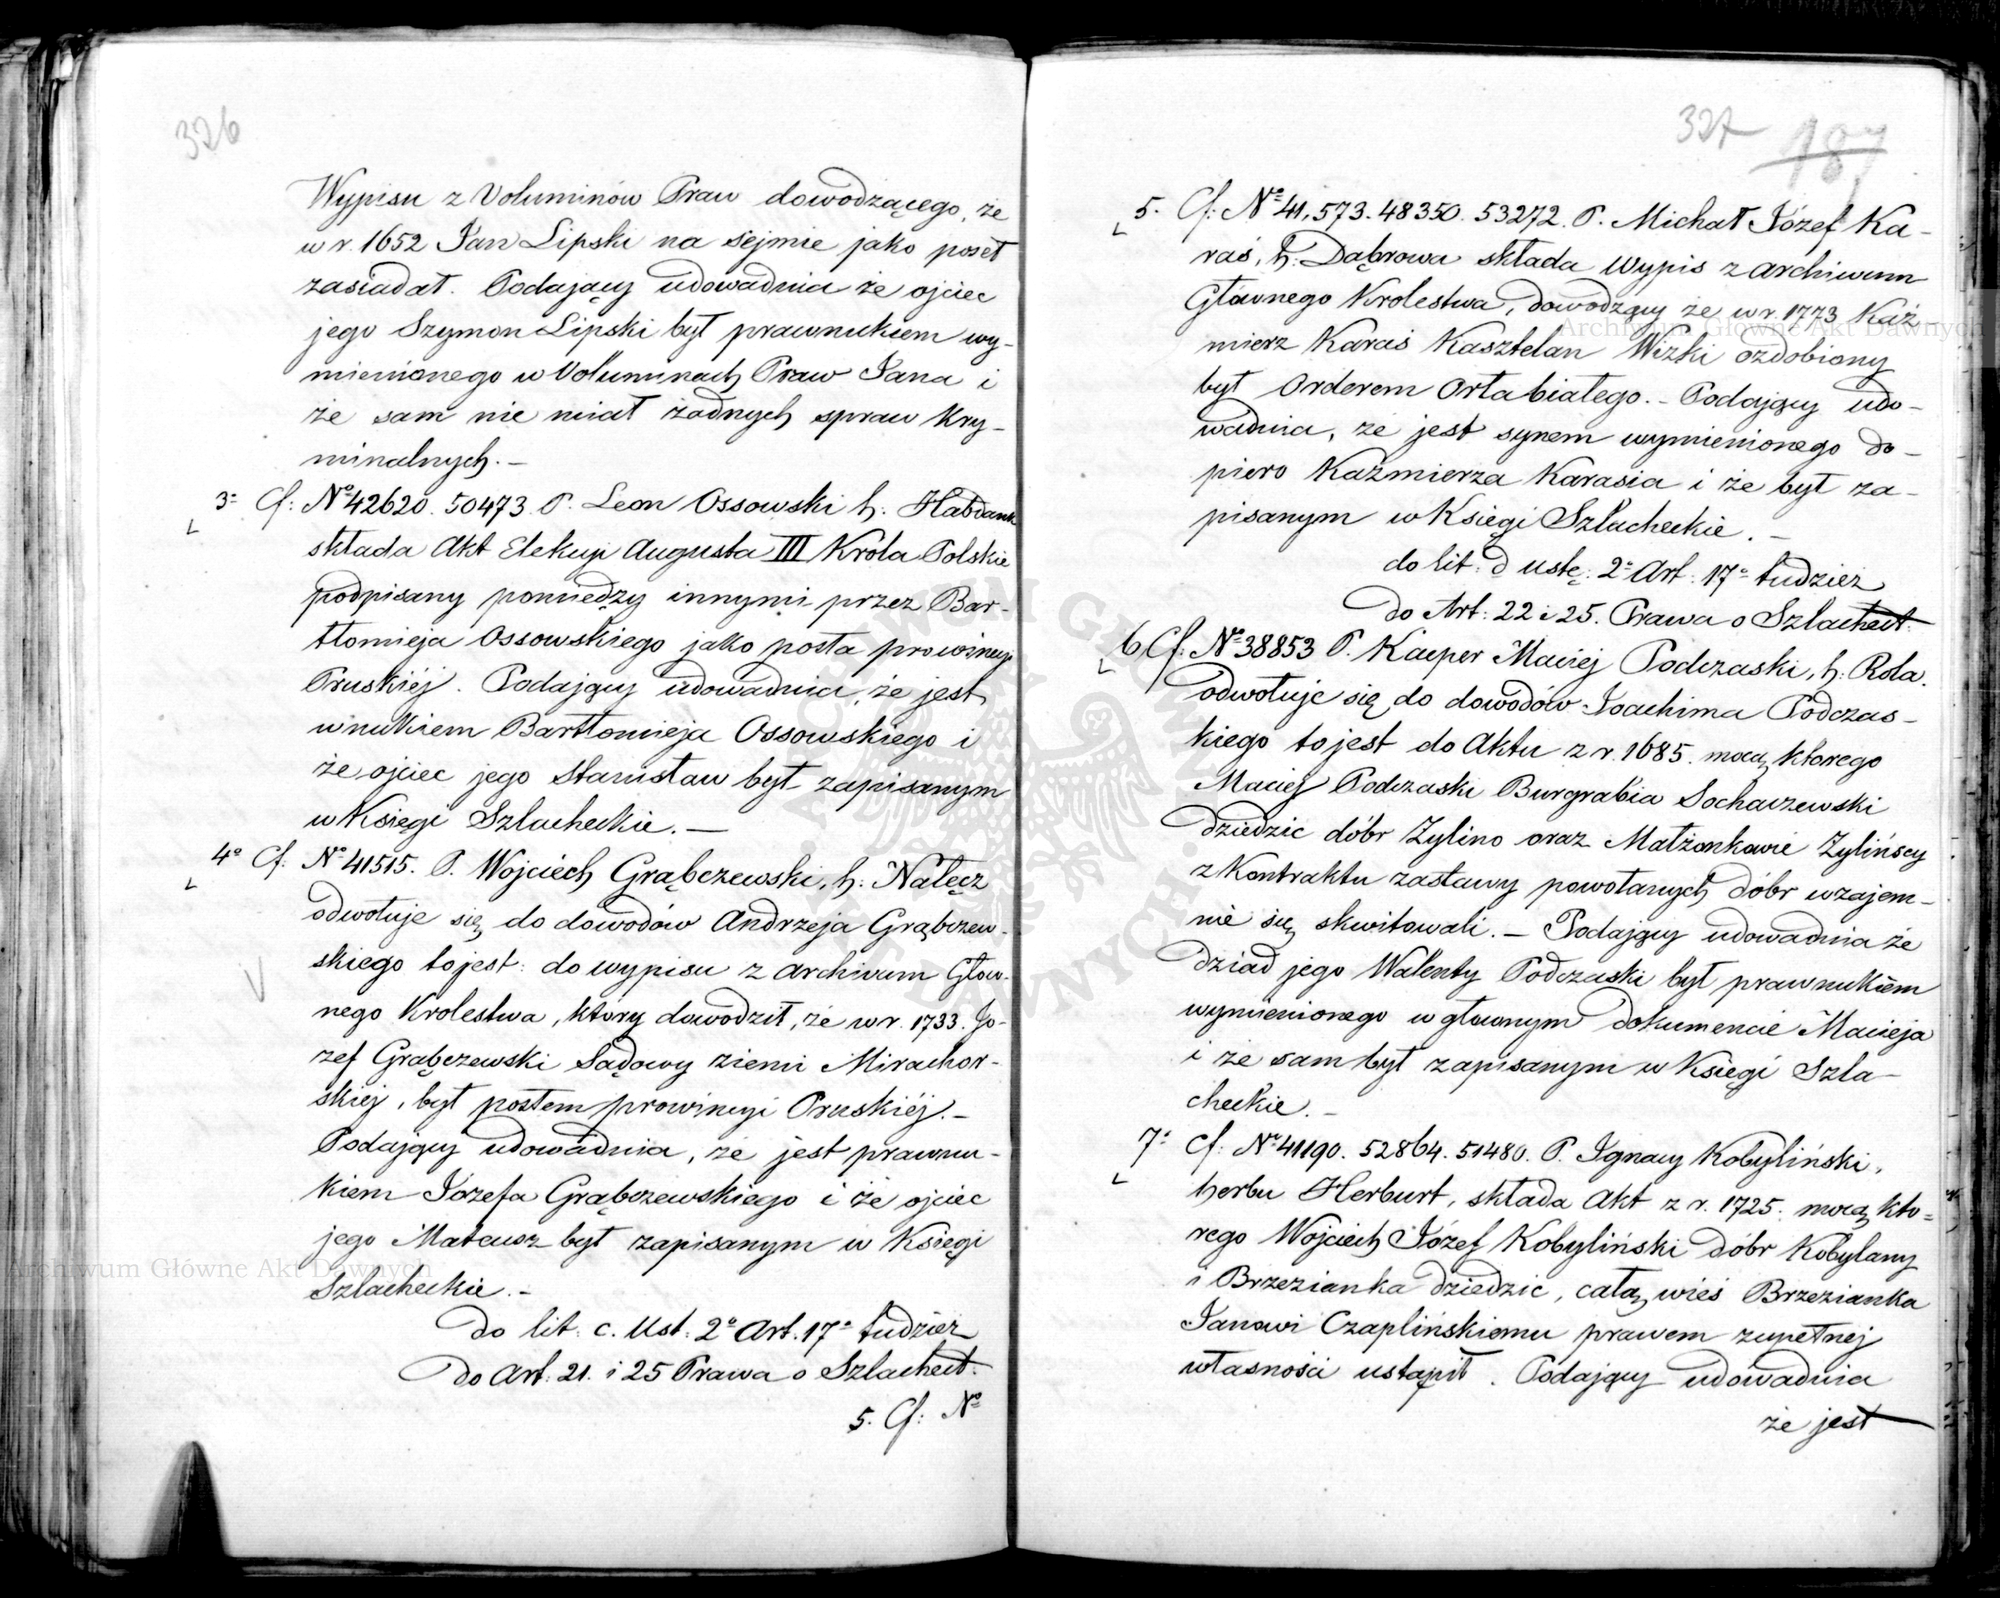 326
Wypisu z Voluminów Praw dowodzącego, że
w r. 1652 Jan Lipski na sejmie jako poseł
zasiadał. Podający udowadnia że ojciec
jego Szymon Lipski był prawnukiem wy-
mienionego w Voluminach Praw Jana i
że sam nie miał żadnych spraw kry-
minalnych. –
3° Cf: N° 42620. 50473 P. Leon Ossowski h. Habdank
składa Akt Elekcyi Augusta III Króla Polskie
podpisany pomiędzy innymi przez Bar-
tłomieja Ossowskiego jako posła prowincyi
Pruskiéj. Podający udowadnia, że jest
wnukiem Bartłomieja Ossowskiego i
że ojciec jego Stanisław był zapisanym
w Księgi Szlacheckie. —
4° Cf: N° 41515. P. Wojciech Grąbczewski, h: Nałęcz
odwołuje się do dowodów Andrzeja Grąbczew-
skiego to jest: do wypisu z Archivum Głów-
nego Krolestwa, który dowodził, że w r. 1733. Jó-
zef Grąbczewski Sądowy ziemi Mirachow-
skiej, był posłem prowincyi Pruskiéj. –
Podający udowadnia, że jest prawnu-
kiem Józefa Grąbczewskiego i że ojciec
jego Mateusz był zapisanym w Księgi
Szlacheckie. –
do lit: c. Ust: 2° Art. 17° tudzież
do Art: 21. i 25 Prawa o Szlachect.
5. Cf: N°
327 187
5. Cf: N° 41,573. 48350. 53272. P. Michał Józef Ka-
raś, h: Dąbrowa składa Wypis z Archiwum
Głównego Krolestwa, dowodzący że w r. 1773 Kaź-
mierz Karaś Kasztelan Wizki ozdobiony
był Orderem Orła białego. – Podający udo-
wadnia, że jest synem wymienionego do-
piero Kaźmierza Karasia i że był za-
pisanym w Księgi Szlacheckie. –
do lit: d ustę: 2° Art: 17° tudzież
do Art: 22 i 25. Prawa o Szlachect.
6 Cf: N° 38853 P. Kacper Maciej Podczaski, h: Rola.
odwołuje się do dowodów Joachima Podczas-
kiego to jest do Aktu z r. 1685. mocą ktorego
Maciej Podczaski Burgrabia Sochaczewski
dziedzic dóbr Żylino oraz Małżonkowie Żylińscy
z Kontraktu zastawy powołanych dóbr wzajem-
nie się skwitowali. – Podający udowadnia że
dziad jego Walenty Podczaski był prawnukiem
wymienionego w głównym dokumencie Macieja
i że sam był zapisanym w Księgi Szla-
checkie. –
7° Cf: N° 41190. 52864. 51480. P. Ignacy Kobyliński,
herbu Herburt, składa Akt z r. 1725. mocą któ-
rego Wojciech Józef Kobyliński dóbr Kobylany
i Brzezianka dziedzic, całą wieś Brzezianka
Janowi Czaplińskiemu prawem zupełnej
własności ustąpił. Podający udowadnia
że jest
Archiwum Główne Akt Dawnych
Archiwum Główne Akt Dawnych